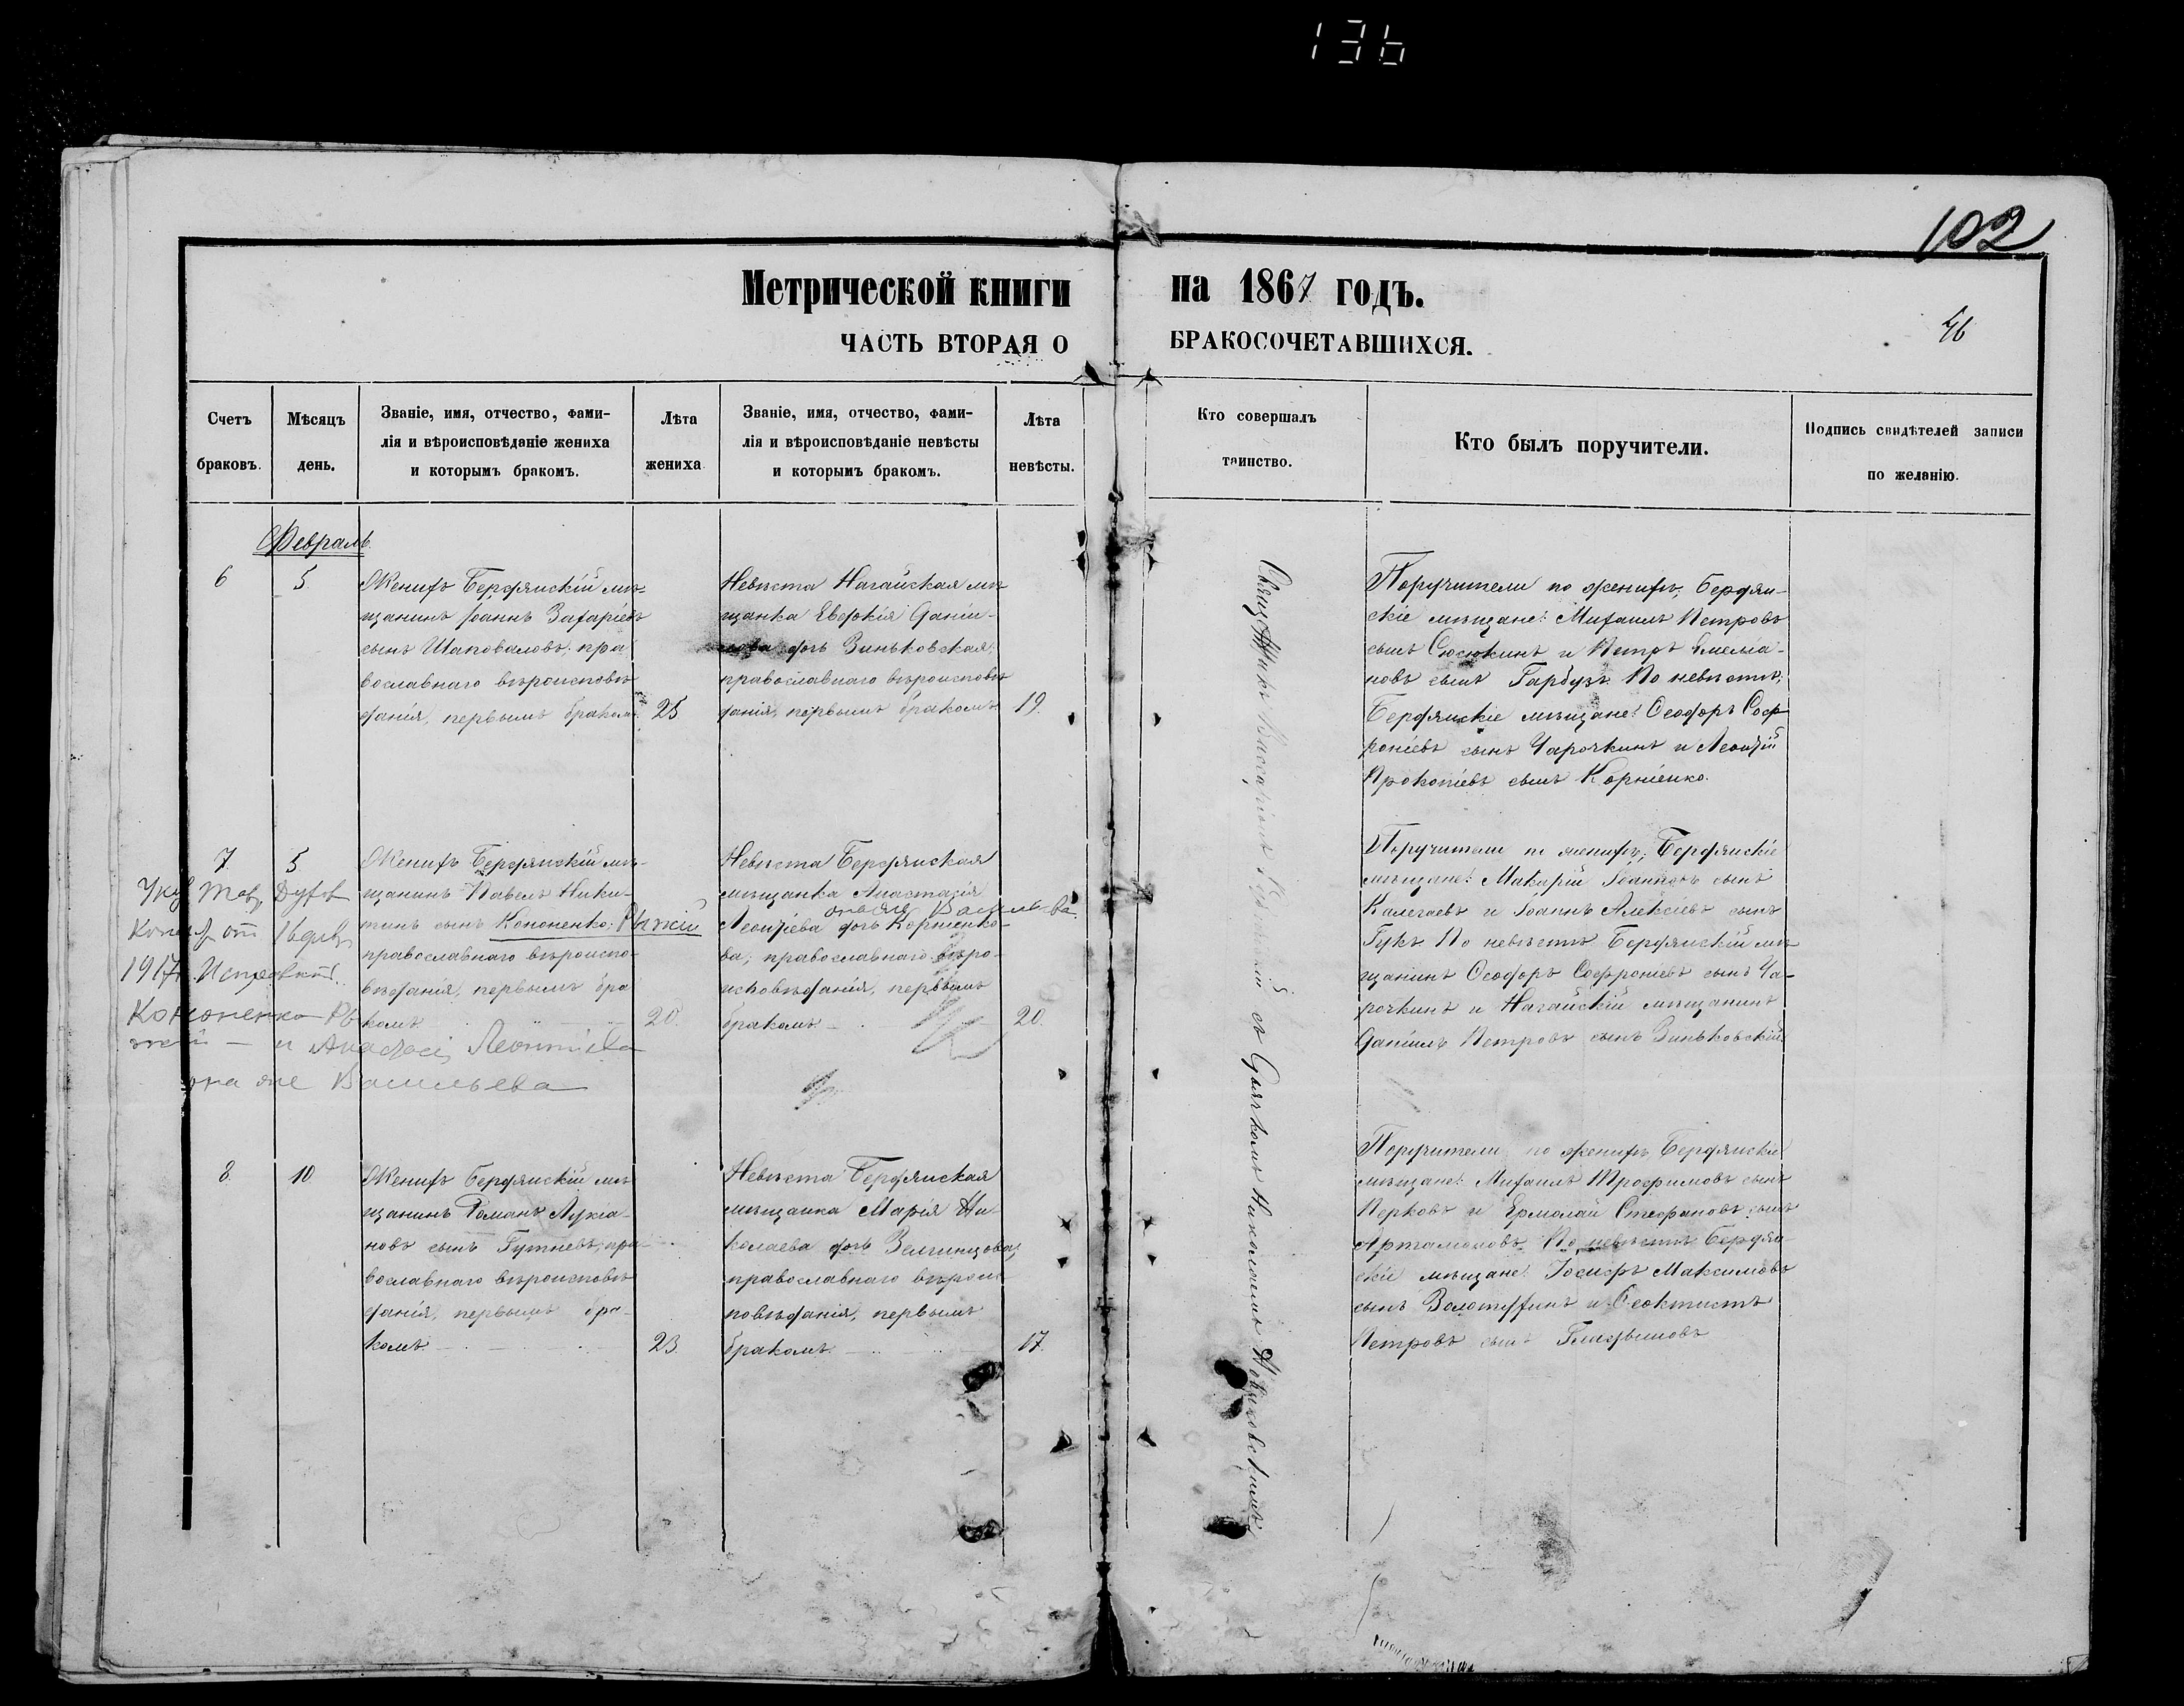 136
102
Метрической книги на 1867 годъ.
46
ЧАСТЬ ВТОРАЯ О БРАКОСОЧЕТАВШИХСЯ.
Счетъ браковъ.
Мѣсяцъ день.
Званіе, имя, отчество, фами-
лія и вѣроисповѣданіе жениха
и которымъ бракомъ.
Лѣта жениха
Званіе, имя, отчество, фами-
лія и вѣроисповѣданіе невѣсты
и которымъ бракомъ.
Лѣта невѣсты.
Кто совершалъ таинство.
Кто былъ поручители.
Подпись свидѣтелей записи
по желанію.
Февраль.
6
5
Женихъ Бердянскій мѣ-
щанинъ Іоаннъ Захаріевъ
сынъ Шаповаловъ; пра
вославнаго вѣроисповѣ
данія, первымъ бракомъ.
25
Невѣста Нагайская мѣ
щанка Евдокія Даніи-
лова дочь Зиньковская;
православнаго вѣроисповѣ
данія, первымъ бракомъ
19.
Поручители по женихѣ; Бердян-
скіе мѣщане: Михаилъ Петровъ
сынъ Сюсюкинъ и Петръ Емеліа-
новъ сынъ Гарбузъ. По невѣстѣ;
Бердянскіе мѣщане: Ѳеодоръ Соф
роніевъ сынъ Чарочкинъ и Леонтій
Прокопіевъ сынъ Корніенко.
7
5
Женихъ Бердянскій мѣ-
щанинъ Павелъ Ники-
тинъ сынъ Кононенко; Рыжій
православнаго вѣроиспо-
вѣданія, первымъ бра
комъ.
20.
Невѣста Бердянская
мѣщанка Анастасія
она же Васильева
Леонтіева дочь Корніенко-
ва; православнаго вѣро-
исповѣданія, первымъ
бракомъ
20.
Указ. Тав. Духов.
Конс. от 16 фев.
1917 г.
Кононенко Ры
жій — и Анастасі Леонтіева
она же Васильева
Поручители по женихѣ; Бердянскіе
мѣщане: Макарій Іоанновъ сынъ
Калегаевъ и Іоаннъ Алексіевъ сынъ
Гукъ. По невѣстѣ Бердянскій мѣ
щанинъ Ѳеодоръ Софроніевъ сынъ Ча-
рочкинъ и Нагайскій мѣщанинъ
Даніилъ Петровъ сынъ Зиньковскій
8.
10
Женихъ Бердянскій мѣ
щанинъ Романъ Лукіа-
новъ сынъ Гутневъ; пра-
вославнаго вѣроисповѣ
данія, первымъ бра-
комъ.
23.
Невѣста Бердянская
мѣщанка Марія Ни-
колаева дочь
православнаго вѣроис-
повѣданія, первымъ
бракомъ.
17.
Поручители по женихѣ Бердянскіе
мѣщане: Михаилъ Трофимовъ сынъ
Перковъ и Ермолай Стефановъ сынъ
Артамоновъ. По невѣстѣ Бердян
скіе мѣщане: Іосифъ Максимовъ
сынъ и Ѳеоктистъ
Петровъ сынъ
съ Дьячкомъ Николаемъ